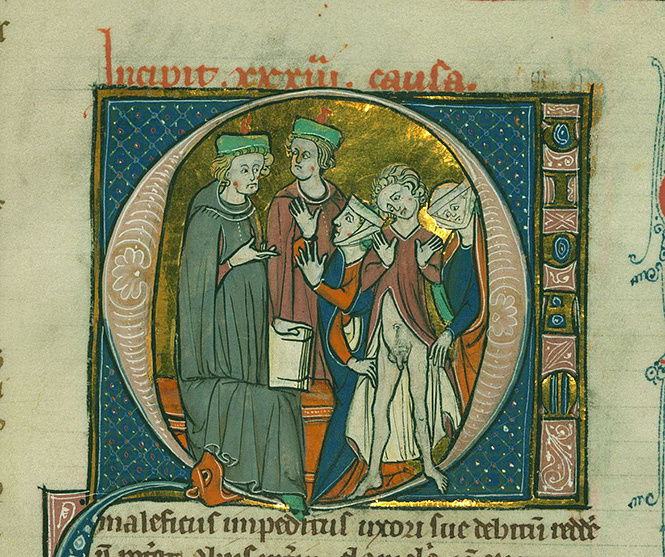 Incipit. xxxiii. causa.
QUIDAM
maleficus impeditus uxori sue debitū reddē